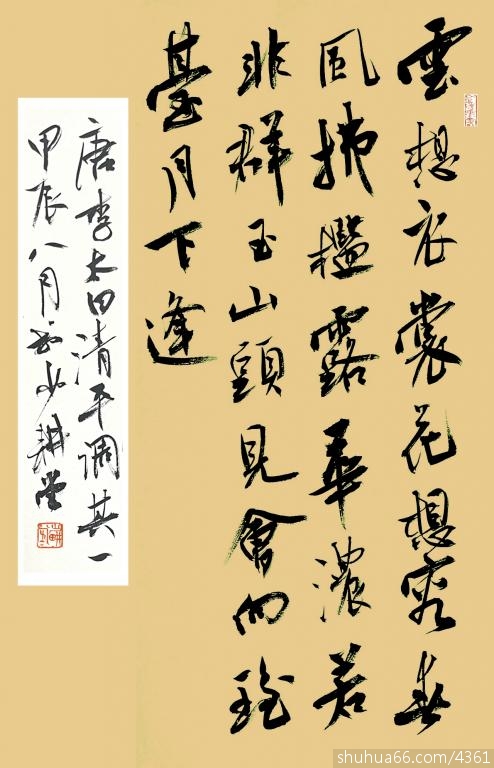 雲想衣裳花想容春
風拂檻露華濃若
非群玉山頭見會向瑤
臺月下逢
唐李太白清平調其一
甲辰八月
shuhua66.com/4361